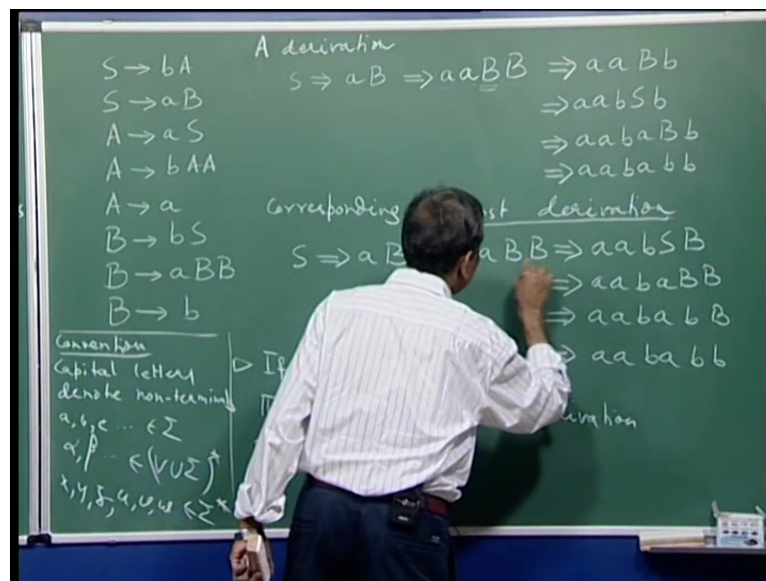 S → bA
S → aB
A → aS
A → bAA
A → a
B → bS
B → aBB
B → b
Convention
Capital letters
denote non-terminal
a, b, c ... ∈ Σ
α, β ... ∈ (V ∪ Σ)*
x, y, z, u, v, w ∈ Σ*
A derivation
S ⇒ aB ⇒ aaBB ⇒ aaBb
⇒ aabSb
⇒ aabaBb
⇒ aababb
Corresponding derivation
S ⇒ aB aBB ⇒ aabSB
⇒ aabaBB
⇒ aababB
⇒ aababb
▷ If